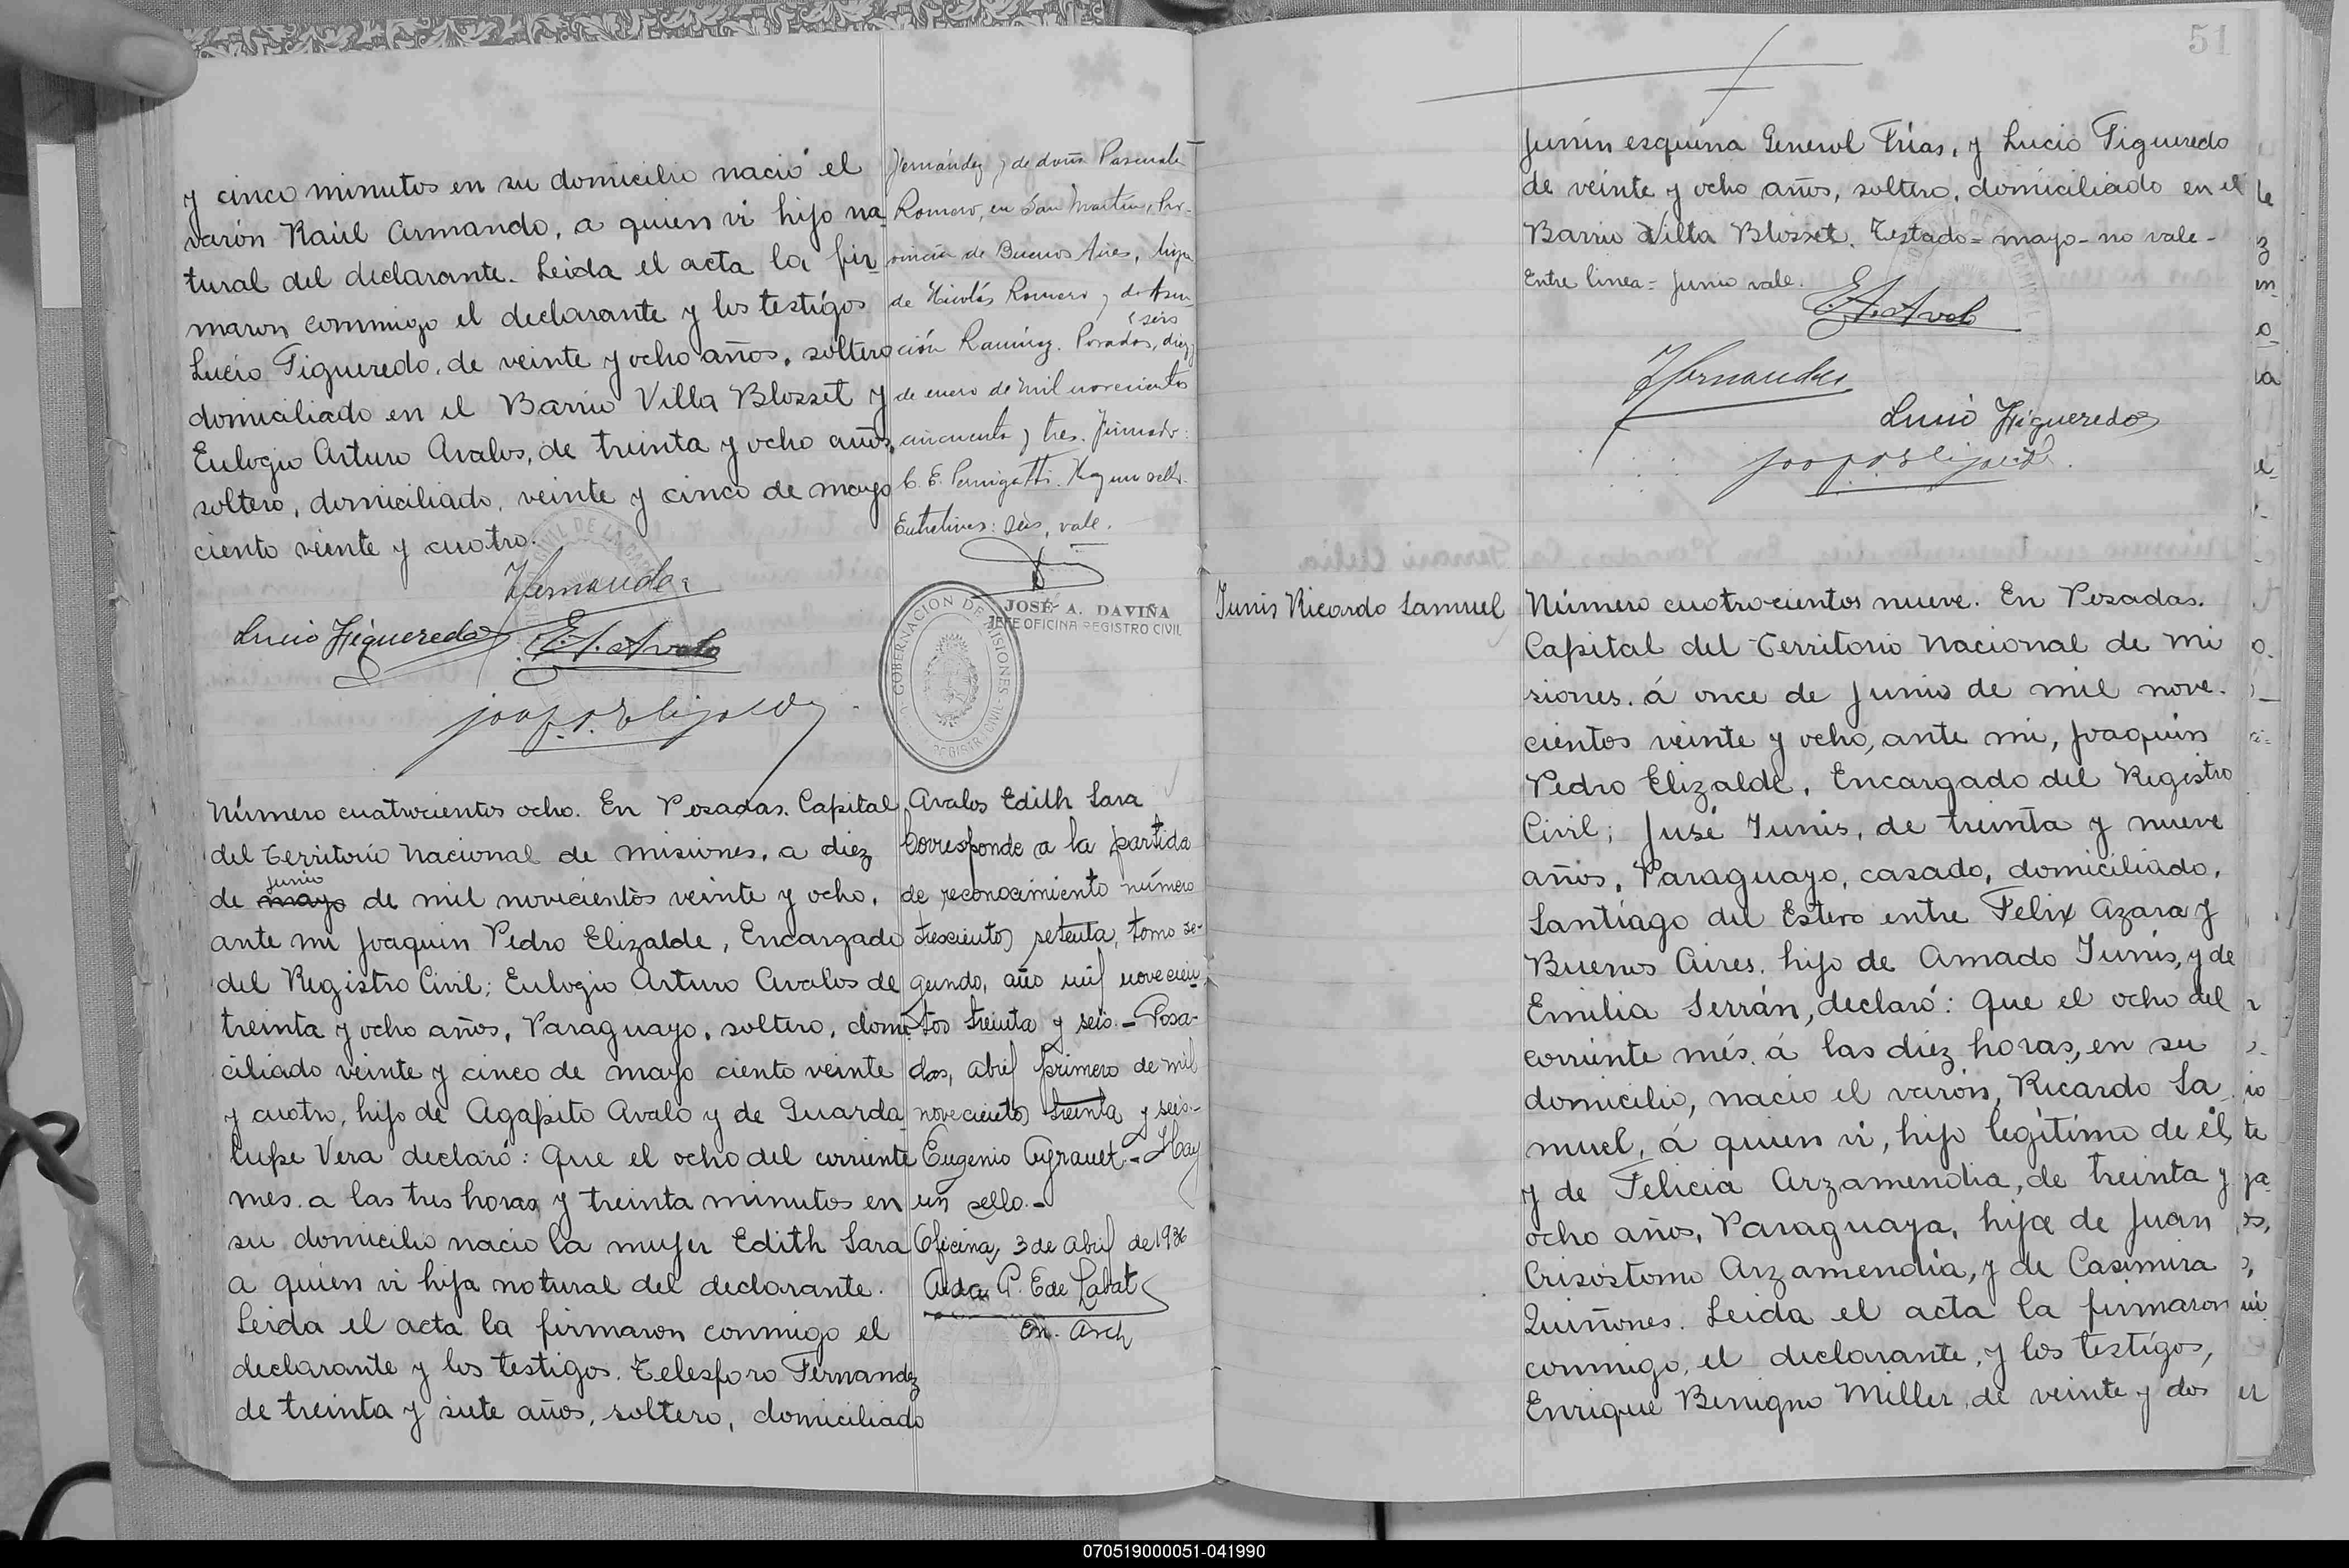 y cinco minutos en su domicilio nació el
varón Raúl Armando, a quien vi hijo na-
tural del declarante. Leida el acta la fir-
maron conmigo el declarante y los testigos
Lucio Figueredo, de veinte y ocho años, soltero
domiciliado en el Barrio Villa Blosset y
Eulogio Arturo Avalos, de treinta y ocho años,
soltero, domiciliado, veinte y cinco de mayo
ciento veinte y cuatro.
Hernandez
Lucio Figueredo
E. A. Avalo
Joaq. P. Elizalde
Fernández y de doña Pascuala
Romero, en San Martín, Pro-
vincia de Buenos Aires, hija
de Nicolás Romero y de Asun-
seis
ción Ramírez. Posadas, diez y
de enero de mil novecientos
cincuenta y tres. Firmado:
Hay un sello.
Entrelineas: seis, vale.
JOSÉ A. DAVIÑA
JEFE OFICINA REGISTRO CIVIL
GOBERNACION DE MISIONES
REGISTRO CIVIL
Número cuatrocientos ocho. En Posadas. Capital
del Territorio Nacional de misiones, a diez
junio
de mayo de mil novecientos veinte y ocho,
ante mi Joaquin Pedro Elizalde, Encargado
del Registro Civil; Eulogio Arturo Avalos de
treinta y ocho años, Paraguayo, soltero, domi-
ciliado veinte y cinco de mayo ciento veinte
y cuatro, hijo de Agapito Avalo y de Guarda-
lupe Vera declaró: Que el ocho del corriente
mes. a las tres horas y treinta minutos en
su domicilio nacio la mujer Edith Sara
a quien vi hija natural del declarante.
Leida el acta la firmaron conmigo el
declarante y los testigos. Telesforo Fernandez
de treinta y siete años, soltero, domiciliado
Avalos Edith Sara
Corresponde a la partida
de reconocimiento número
trescientos setenta, tomo se-
gundo, año mil novecien-
tos treinta y seis.- Posa-
das, abril primero de mil
novecientos treinta y seis.-
Eugenio Ayrauet.- Hay
un sello.-
Oficina, 3 de abril de 1936
Aida P. E de Labat
En. Arch
51
Junin esquina General Frias, y Lucio Figueredo
de veinte y ocho años, soltero, domiciliado en el
Barrio Villa Blosset. Testado = mayo - no vale -
Entre linea = junio vale.
E. A. Avalo
Hernandez
Lucio Figueredo
Joaq. P. Elizalde
Junis Ricardo Samuel
Número cuatrocientos nueve. En Posadas.
Capital del Territorio Nacional de Mi
siones. á once de Junio de mil nove-
cientos veinte y ocho, ante mi, Joaquin
Pedro Elizalde, Encargado del Registro
Civil; José Junis, de treinta y nueve
años, Paraguayo, casado, domiciliado,
Santiago del Estero entre Felix Azara y
Buenos Aires. hijo de Amado Junis, y de
Emilia Serrán, declaró: Que el ocho del
corriente més. á las diez horas, en su
domicilio, nacio el varón, Ricardo Sa-
muel, á quien vi, hijo legítimo de él,
y de Felicia Arzamendia, de treinta y
ocho años, Paraguaya, hija de Juan
Crisóstomo Arzamendia, y de Casimira
Quiñones. Leida el acta la firmaron
conmigo, el declarante, y los testigos,
Enrique Benigno Miller, de veinte y dos
070519000051-041990